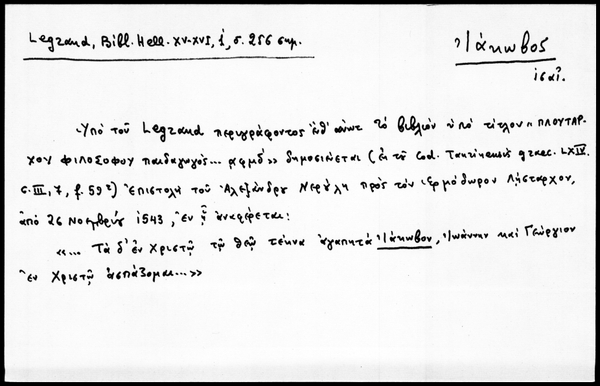 Legrand, Bibl. Hell. XV-XVI, 1, σ. 256 σημ.
Ἰάκωβος
ἱσαῖ.
Ὑπὸ τοῦ Legrand περιγράφοντος τὸ βιβλίον ὑπὸ τίτλον « ΠΛΟΥΤΑΡ-
ΧΟΥ ΦΙΛΟΣΟΦΟΥ παιδαγωγὸς... ͵αφμδʹ» δημοσιεύεται (ἐκ τοῦ Cod. Taurinensis graec. LXIV.
c. III, 7, f. 59) ἐπιστολὴ τοῦ Ἀλεξάνδρου Νερούλη πρὸς τὸν Ἑρμόδωρον Λήσταρχον,
ἀπὸ 26 Νοεμβρίου 1543, ἐν ᾗ ἀναφέρεται:
«... Τὰ δ' ἐν Χριστῷ τῷ Θεῷ τέκνα ἀγαπητά Ἰάκωβον, Ἰωάννην καὶ Γεώργιον
ἐν Χριστῷ ἀσπάζομαι...»